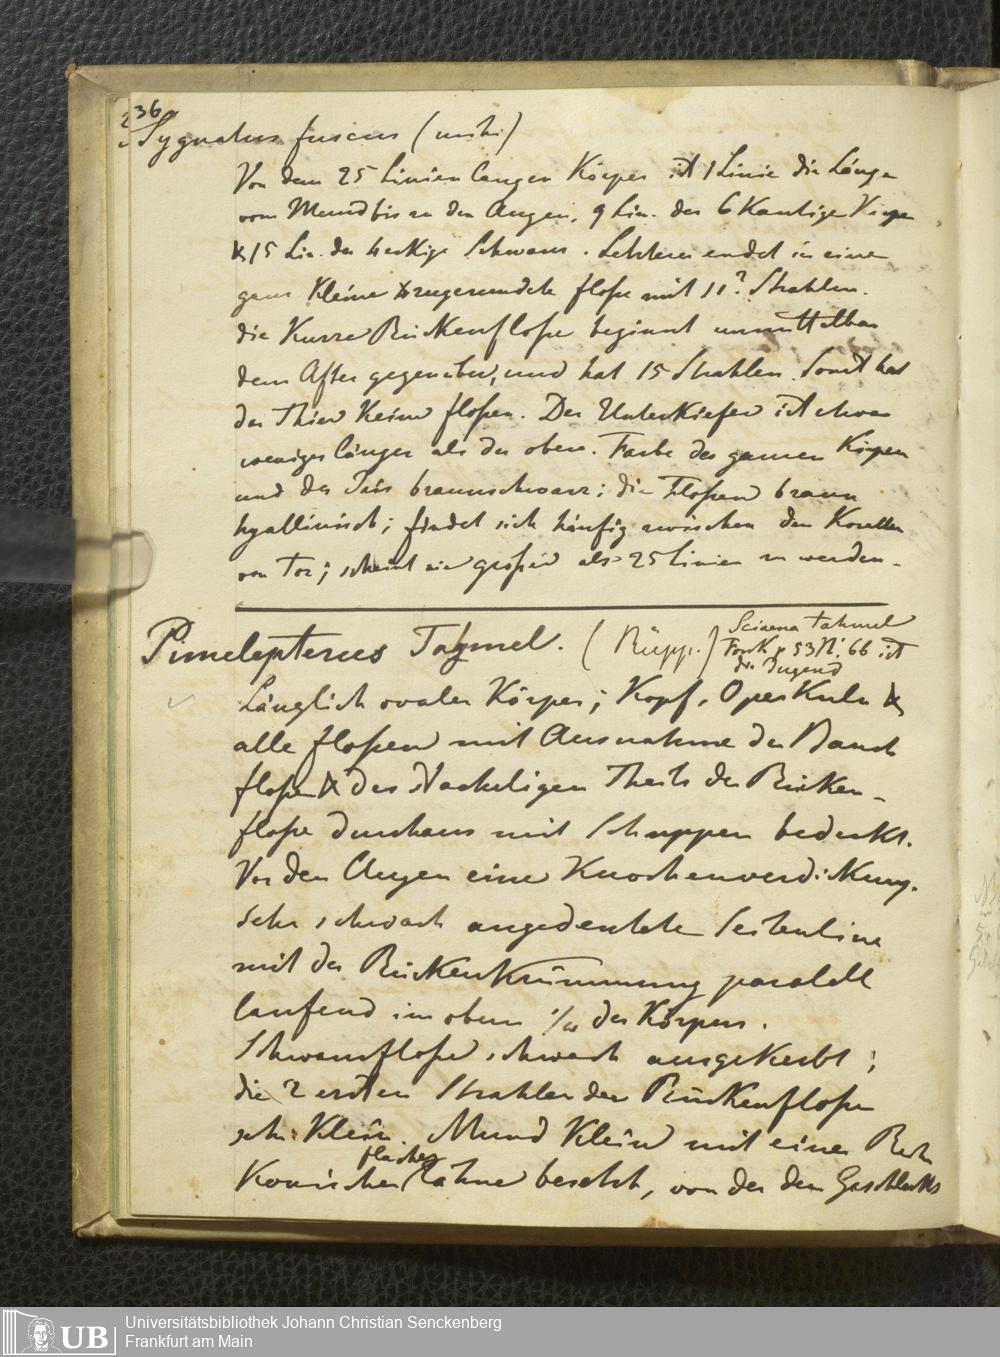 36
Sygnatus fuscus (mihi)
Von dem 25 Linien langen Körper ist 1 Linie die Länge
vom Mund bis zu den Augen, 9 Lin. der 6 kantige Körper
& 15 Lin. der 4 eckige Schwanz. Letzterer endet in eine
ganz kleine zugerundete floße mit 11? Strahlen.
die Kurze Rückenfloße beginnt unmittelbar
dem After gegenüber, und hat 15 Strahlen. Sonst hat
das Thier keine floßen. Der Unterkiefer ist etwas
weniges länger als der obere. Farbe des ganzen Körpers
und der Iris braunschwarz; die Floßen braun
hyallinisch; findet sich häufig zwischen den Korallen
von Tor; scheint nie größer als 25 Linien zu werden.
Pimelepterus Tahmel. (Rüpp.)
Sciaena tahmel
Forsk p 53 N. 66 ist
die Jugend
Länglich ovaler Körper; Kopf, Operkuln &
alle floßen mit Ausnahme der Bauch
floßen & des stacheligen Theils der Rücken-
floße durchaus mit Schuppen bedeckt.
Vor den Augen eine Knochenverdickung.
Sehr schwach angedeutete Seitenlinie
mit der Rückenkrümmung paralell
laufend im obern 1/4 des Körpers.
Schwanzfloße schwach ausgekerbt;
die 2 ersten Strahlen der Rückenfloße
sehr klein. Mund klein mit einer Reihe
flacher
konischer Zähne besetzt, von der den Geschlechts
Universitätsbibliothek Johann Christian Senckenberg
Frankfurt am Main
UB